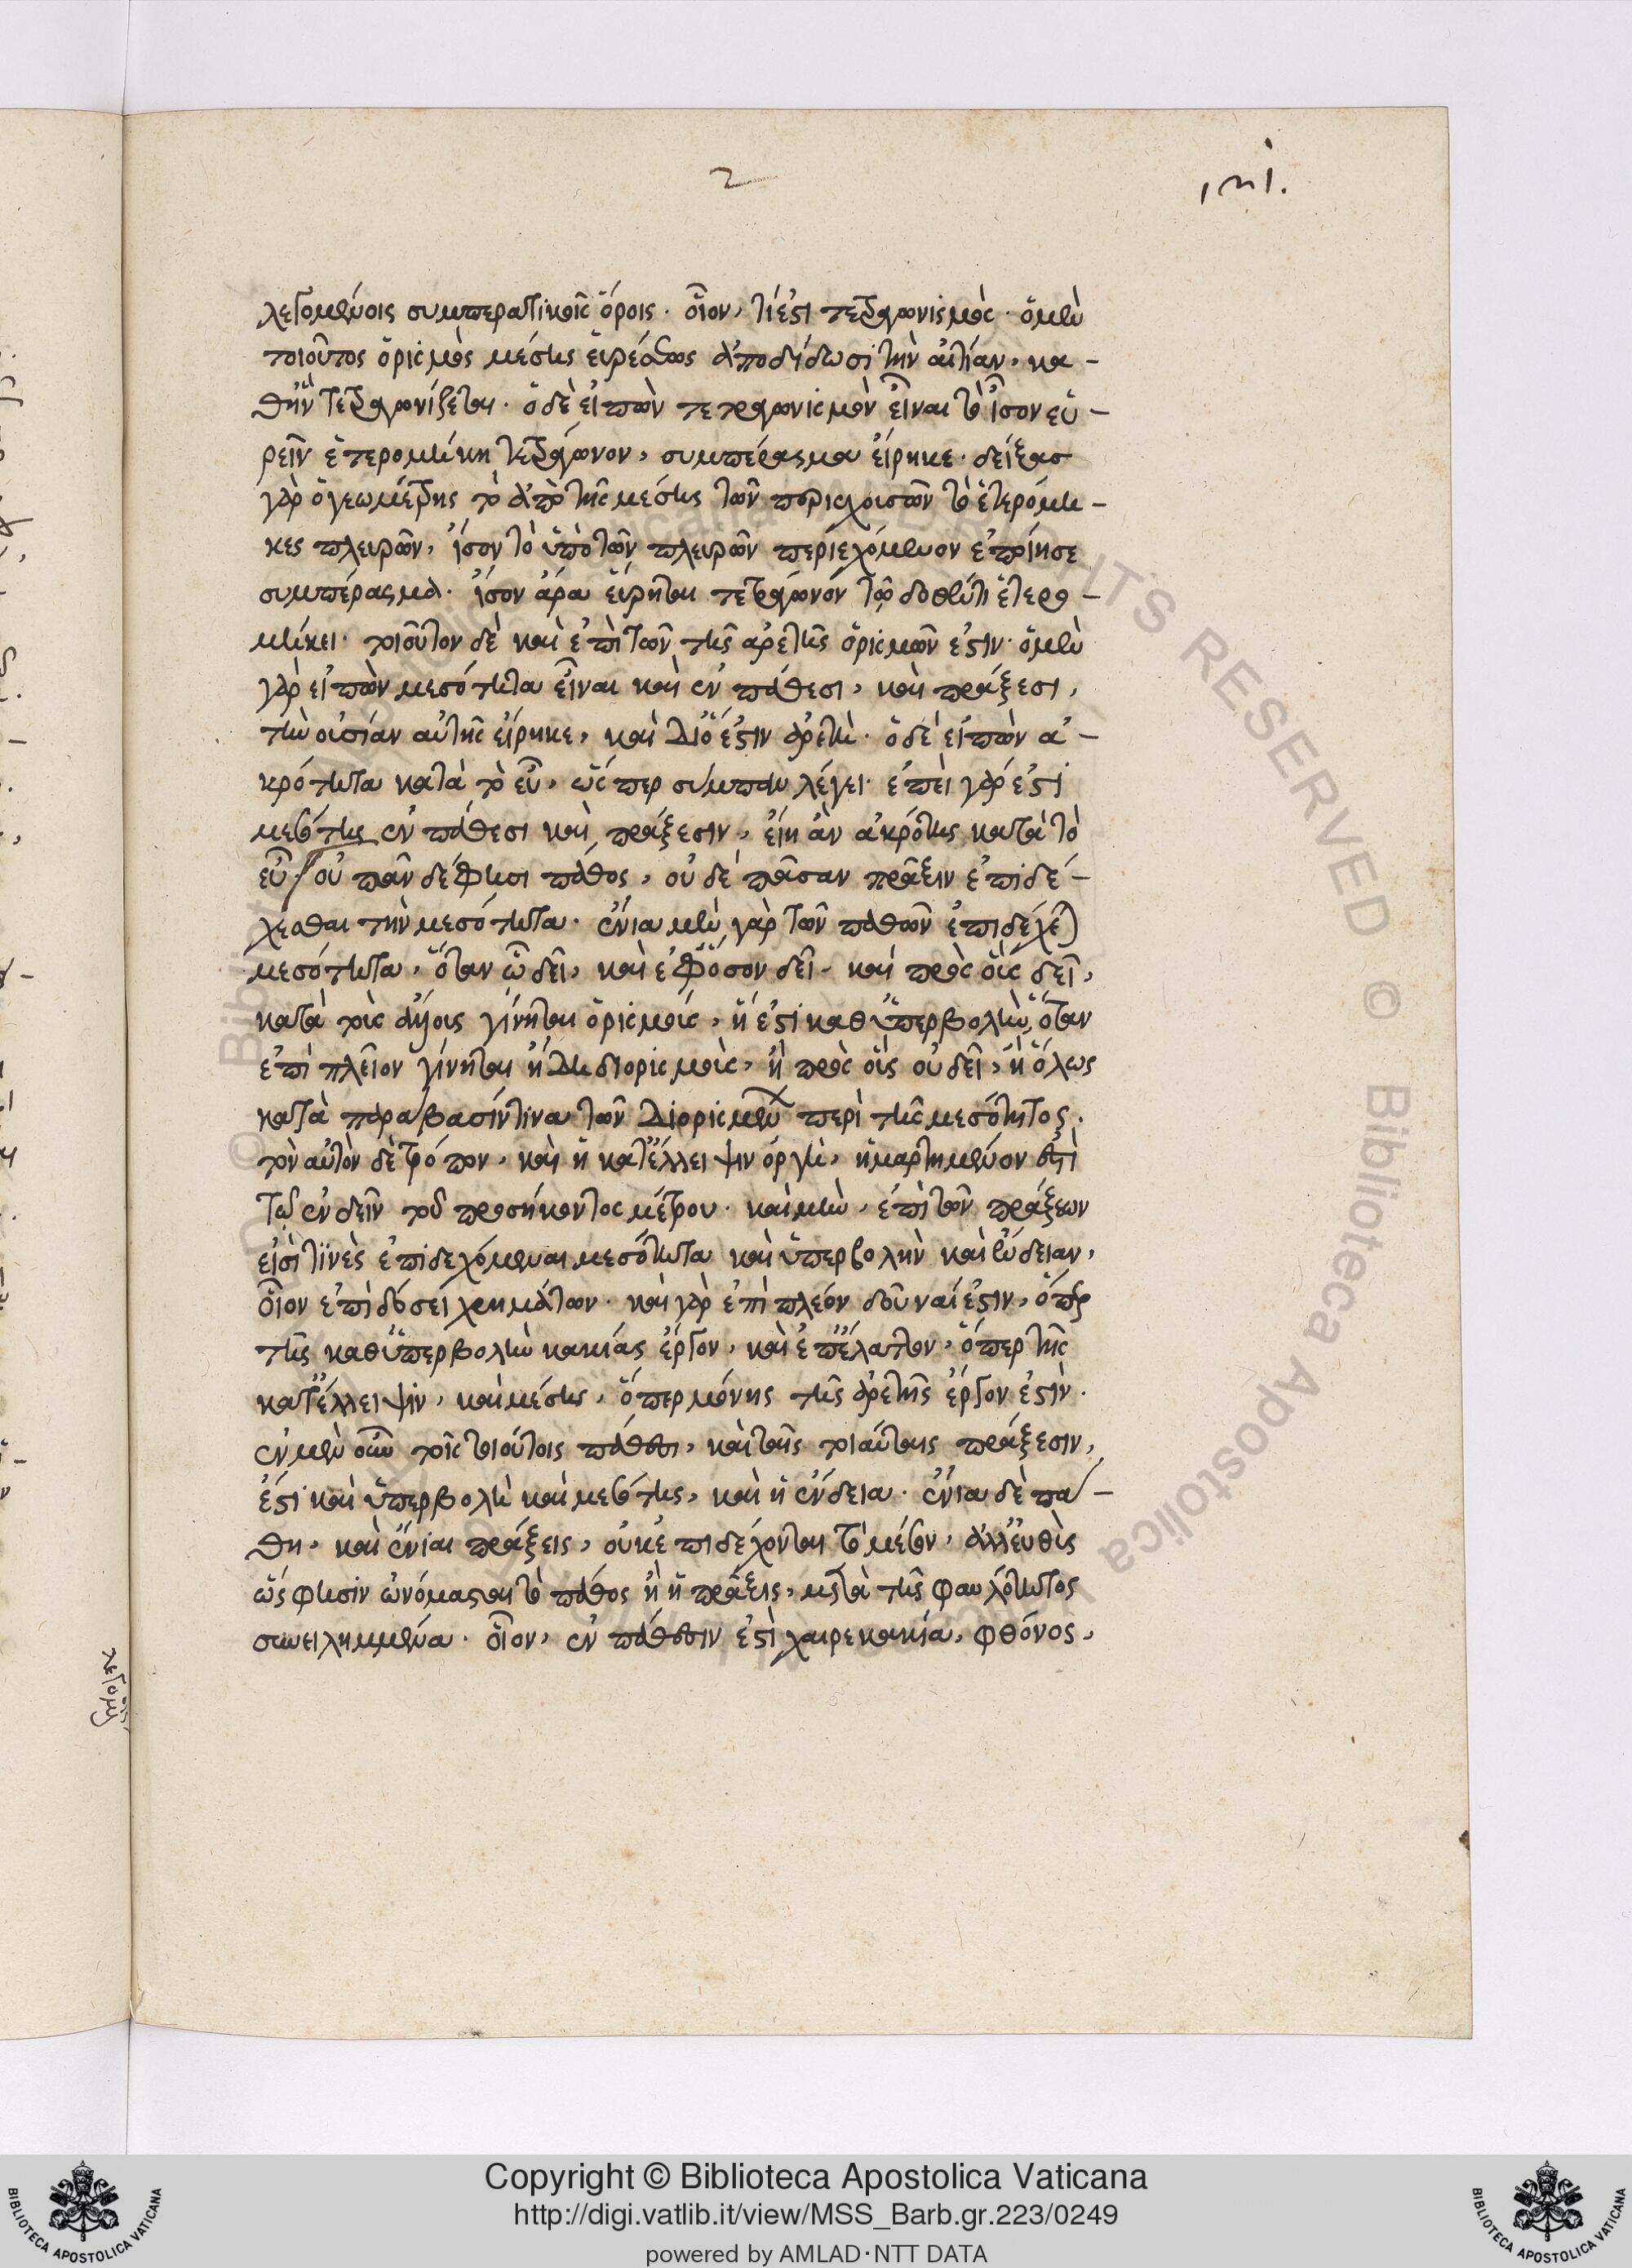 2
λεγομένοις συμπεραστικοῖς ὅροις. οἷον, τί ἐστι τετραγωνισμός. ὁ μὲν
τοιοῦτος ὁρισμὸς μέσης εὑρέσεως ἀποδίδωσι τὴν αἰτίαν, κα-
θ' ἣν τετραγωνίζεται. ὁ δὲ εἰπὼν τετραγωνισμὸν εἶναι τὸ ἴσον εὑ-
ρεῖν ἑτερομήκη τετράγωνον, συμπέρασμα εἴρηκε. δείξας
γὰρ ὁ γεωμέτρης τὸ ἀπὸ τῆς μέσης τῶν τὸ ἑτερόμη-
κες πλευρῶν, ἴσον τὸ ὑπὸ τῶν πλευρῶν περιεχόμενον ἐποίησε
συμπέρασμα. ἴσον ἄρα εὕρηται τετράγωνον τῷ δοθέντι ἑτερο-
μήκει. τοιοῦτον δὲ καὶ ἐπὶ τῶν τῆς ἀρετῆς ὁρισμῶν ἐστιν. ὁ μὲν
γὰρ εἰπὼν μεσότητα εἶναι καὶ ἐν πάθεσι, καὶ πράξεσι,
τὴν οὐσίαν αὐτῆς εἴρηκε, καὶ διὸ ἐστιν ἀρετή. ὁ δὲ εἰπὼν ἀ-
κρότητα κατὰ τὸ εὖ, ὥσπερ λέγει. ἐπεὶ γάρ ἐστι
μεσότης ἐν πάθεσι καὶ πράξεσιν, εἴη ἂν ἀκρότης κατὰ τὸ
εὖ. οὐ πᾶν δέ φησι πάθος, οὐδὲ πᾶσαν πρᾶξιν ἐπιδέ-
χεσθαι τὴν μεσότητα. ἔνια μὲν γὰρ τῶν παθῶν ἐπιδέχεται
μεσότητα, ὅταν ᾧ δεῖ, καὶ ἐφ' ὅσον δεῖ. καὶ πρὸς οἷς δεῖ,
κατὰ τοῖς ἄλλοις γίνηται ὁρισμοῖς, ἤ ἐστι καθ' ὑπερβολὴν, ὅταν
ἐπὶ πλεῖον γίνηται ἢ διορισμοῖς, ἢ πρὸς οἷς οὐ δεῖ, ἢ ὅλως
κατὰ παράβασίν τινα τῶν διορισμῶν περὶ τῆς μεσότητος.
τὸν αὐτὸν δὲ τρόπον, καὶ ἡ κατ' ἔλλειψιν ὀργὴ, ἡμαρτημένον ἐπὶ
τῷ ἐνδεῖν τοῦ προσήκοντος μέτρου. καὶ μὴν, ἐπὶ τῶν πράξεων
εἰσί τινὲς ἐπιδεχόμεναι μεσότητα καὶ ὑπερβολὴν καὶ ἔνδειαν,
οἷον ἐπὶ δόσει χρημάτων. καὶ γὰρ ἐπὶ πλέον δοῦναί ἐστιν, ὅπερ
τῆς καθ' ὑπερβολὴν κακίας ἔργον, καὶ ἐπ' ἔλαττον, ὅπερ τῆς
κατ' ἔλλειψιν, καὶ μέσης, ὅπερ μόνης τῆς ἀρετῆς ἔργον ἐστίν.
ἐν μὲν οὖν τοῖς τοιούτοις πάθεσι, καὶ ταῖς τοιαύταις πράξεσιν,
ἔστι καὶ ὑπερβολὴ καὶ μεσότης, καὶ ἡ ἔνδεια. ἔνια δὲ πά-
θη, καὶ ἔνιαι πράξεις, οὐκ ἐπιδέχονται τὸ μέσον, ἀλλ' εὐθὺς
ὥς φησιν ὠνόμασται τὸ πάθος ἢ ἡ πρᾶξις, μετὰ τῆς φαυλότητος
συνειλημμένα. οἷον, ἐν πάθεσιν ἐστὶ χαιρεκακία, φθόνος,
Copyright © Biblioteca Apostolica Vaticana
http://digi.vatlib.it/view/MSS_Barb.gr.223/0249
powered by AMLAD·NTT DATA